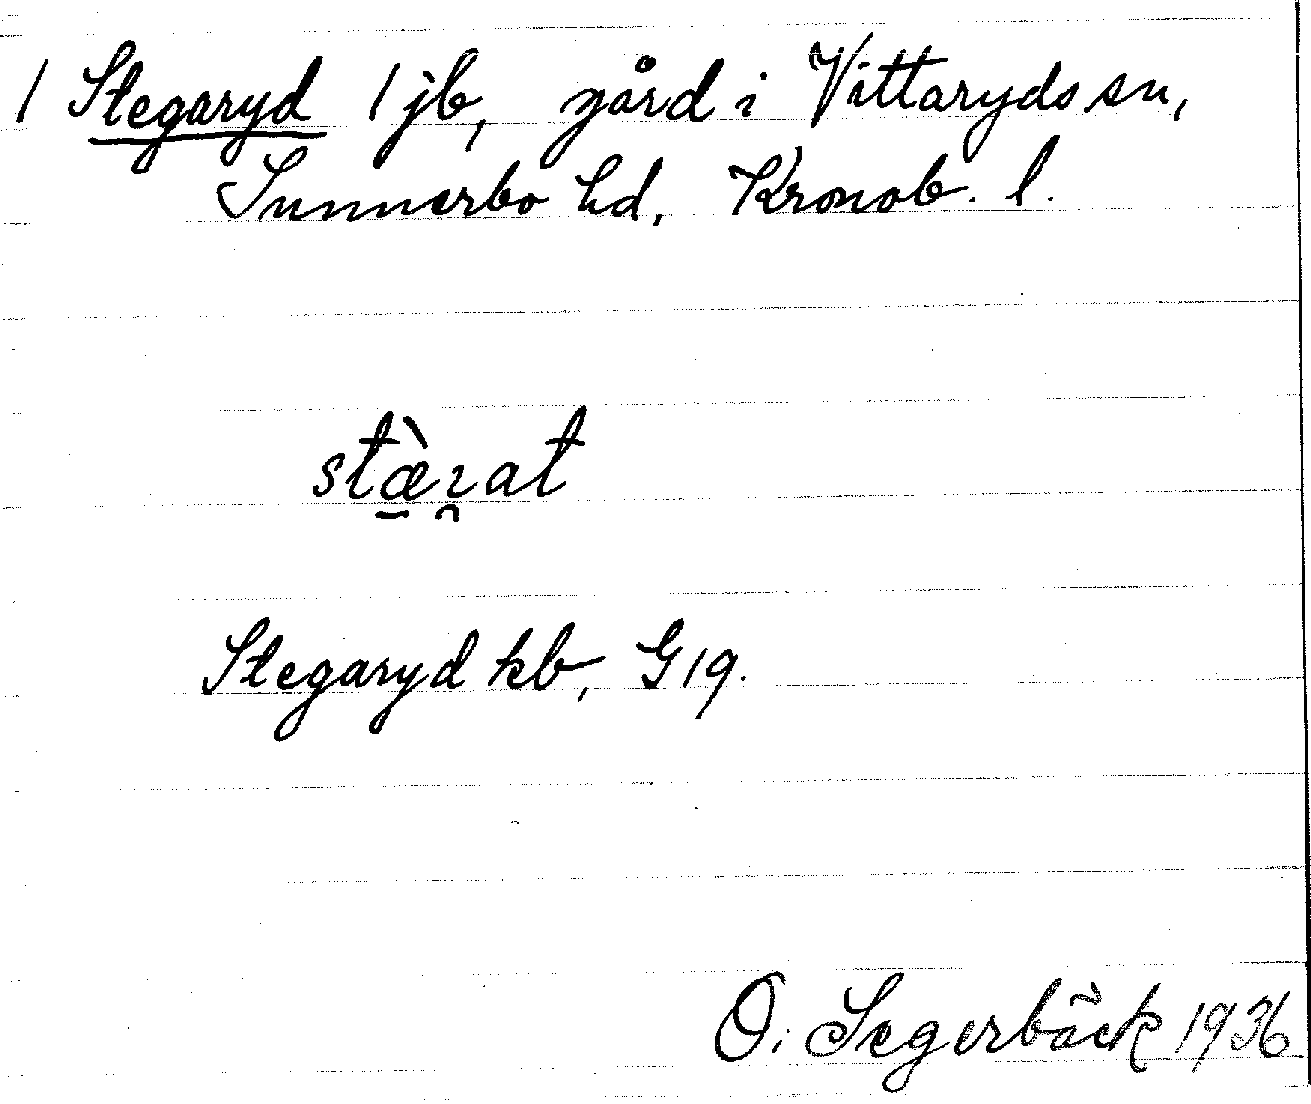 1 Stegaryd 1 jb, gård i Vittaryds sn,
Sunnerbo hd, Kronob. l.
stæ̠̀ɪ̯at
Stegaryd kb, G19.
O. Segerbäck 1936